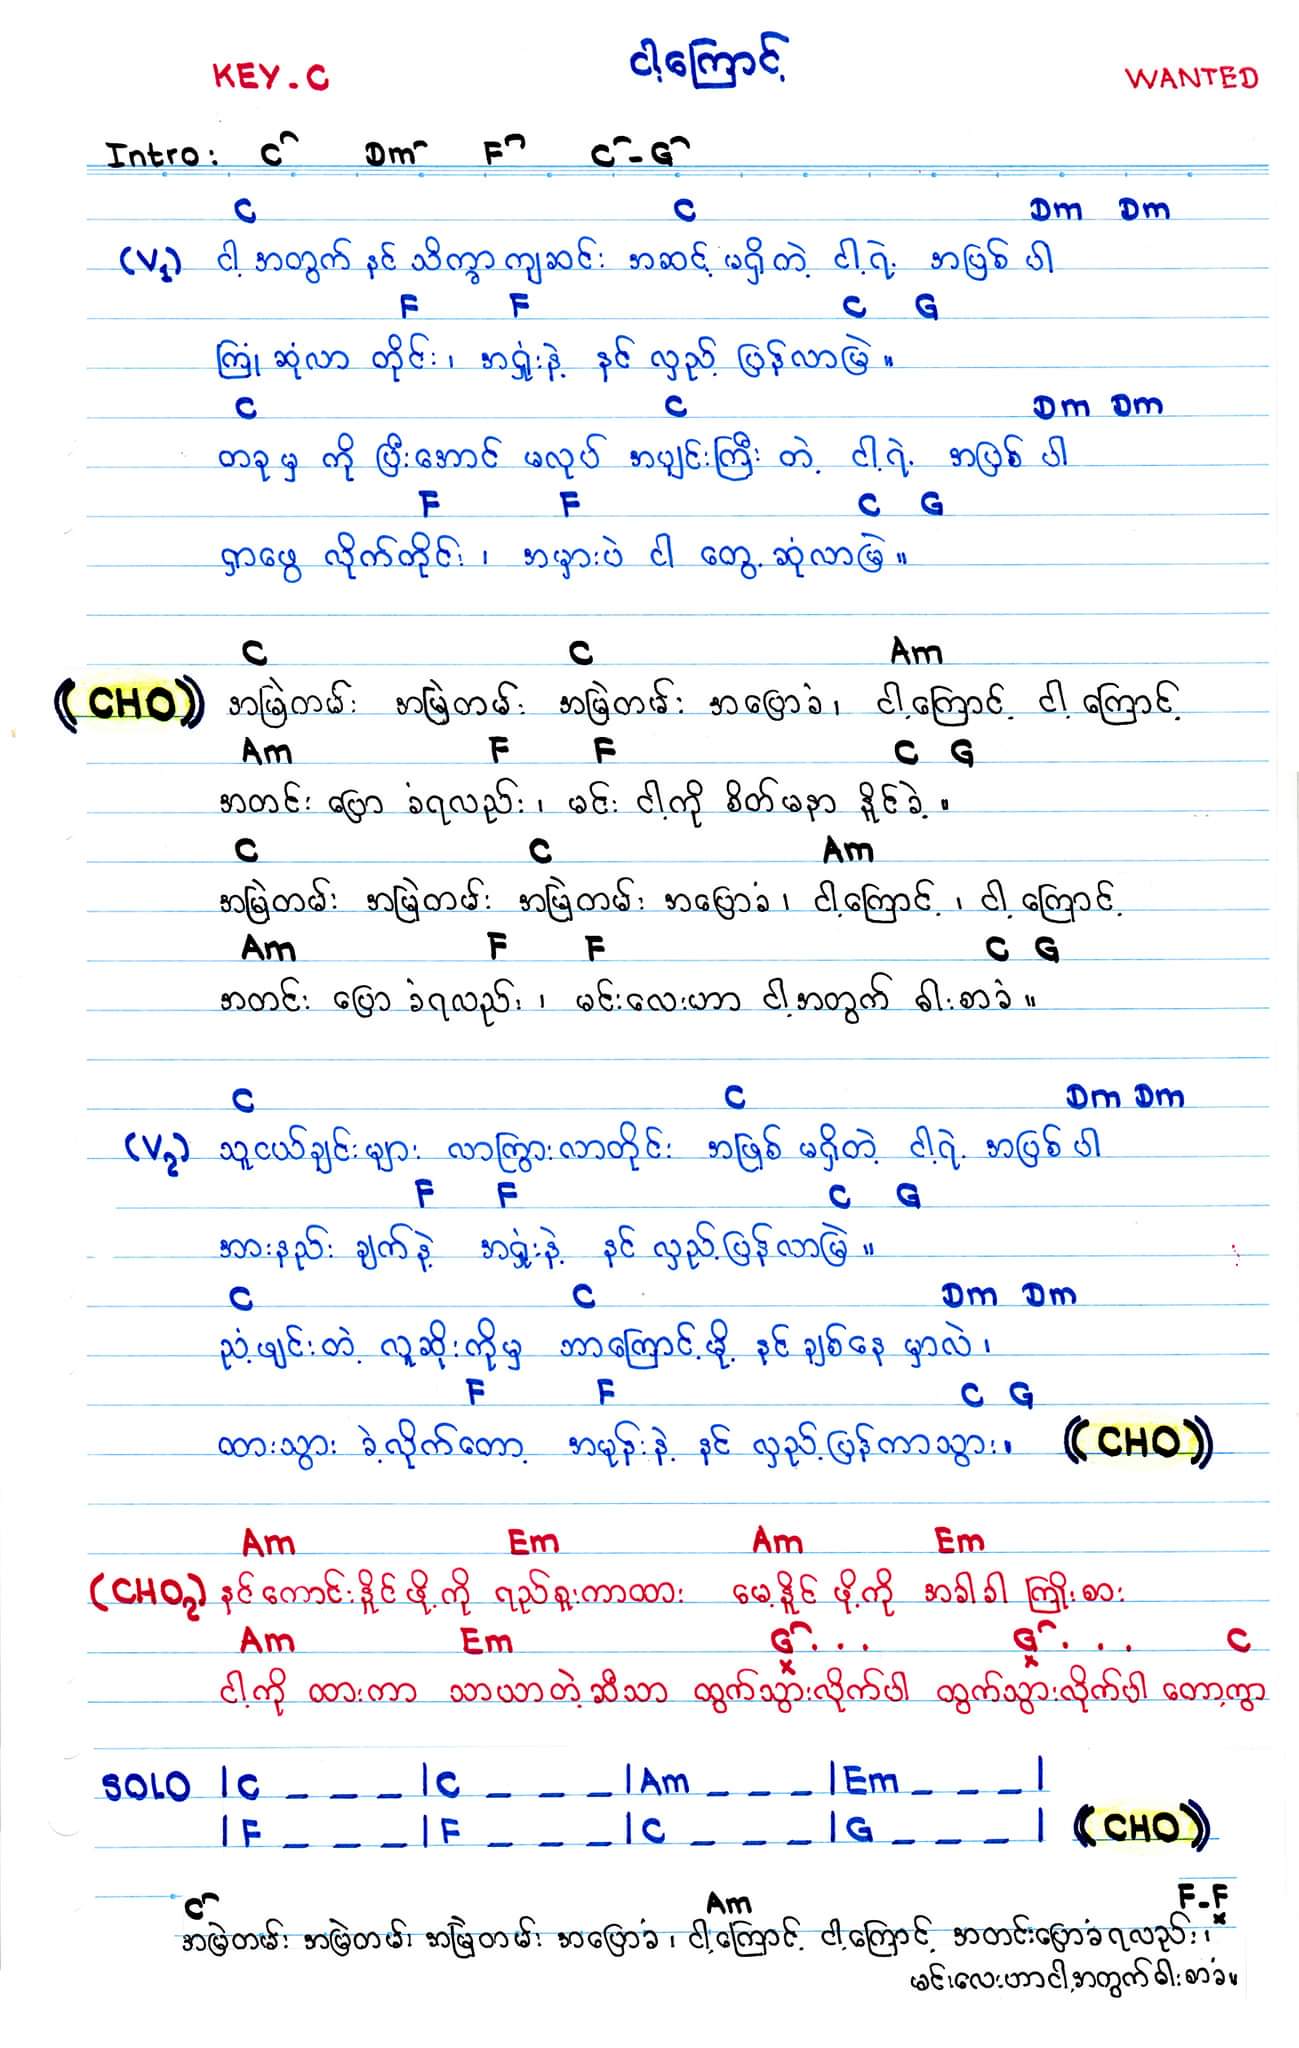 KEY-C ငါ့ကြောင့် WANTED
Intro: C Dm F C-G
C C Dm Dm
(V1) ငါ့ အတွက် နင် သိက္ခာကျဆင်း အဆင့် မရှိတဲ့ ငါ့ရဲ့ အဖြစ် ပါ
F F C G
ကြုံ ဆုံလာ တိုင်း၊ အရှုံးနဲ့ နင် လှည့် ပြန်လာမြဲ။
C C Dm Dm
တခုမှ ကို ပြီးအောင် မလုပ် အပျင်းကြီး တဲ့ ငါ့ရဲ့ အဖြစ် ပါ
F F C G
ရှာဖွေ လိုက်တိုင်း၊ အမှားပဲ ငါ တွေ့ ဆုံလာမြဲ။
C C Am
(CHO) အမြဲတမ်း အမြဲတမ်း အမြဲတမ်း အပြောခံ၊ ငါ့ကြောင့် ငါ့ ကြောင့်
Am F F C G
အတင်း ပြော ခံရလည်း၊ မင်း ငါ့ကို စိတ်မနာ နိူင်ခဲ့။
C C Am
အမြဲတမ်း အမြဲတမ်း အမြဲတမ်း အပြောခံ၊ ငါ့ကြောင့်၊ ငါ့ ကြောင့်
Am F F C G
အတင်း ပြော ခံရလည်း၊ မင်းလေးဟာ ငါ့အတွက် ဓါးစာခံ။
C C Dm Dm
(V2) သူငယ်ချင်းများ လာကြွားလာတိုင်း အဖြစ် မရှိတဲ့ ငါ့ရဲ့ အဖြစ်ပါ
F F C G
အားနည်း ချက်နဲ့ အရှုံးနဲ့ နင် လှည့်ပြန်လာမြဲ။
C C Dm Dm
ညံ့ဖျင်းတဲ့ လူဆိုးကိုမှ ဘာကြောင့်မို့ နင် ချစ်နေ မှာလဲ၊
F F C G
ထားသွား ခဲ့လိုက်တော့ အမုန်းနဲ့ နင် လှည့်ပြန်ကာသွား။ (CHO)
Am Em Am Em
(CHO2) နင်ကောင်းနိူင်ဖို့ကို ရည်စူးကာထား မေ့နိူင် ဖို့ကို အခါခါ ကြိုးစား
Am Em G... G... C
ငါ့ကို ထားကာ သာယာတဲ့ဆီသာ ထွက်သွားလိုက်ပါ ထွက်သွားလိုက်ပါ တော့ကွာ
SOLO |C _ _ _ |C _ _ _ |Am _ _ _ |Em _ _ _ |
|F _ _ _ |F _ _ _ |C _ _ _ |G _ _ _ | (CHO)
C Am F-F
အမြဲတမ်း အမြဲတမ်း အမြဲတမ်း အပြောခံ၊ ငါ့ကြောင့် ငါ့ကြောင့် အတင်းပြောခံရလည်း၊
မင်းလေးဟာငါ့အတွက်ဓါးစာခံ။